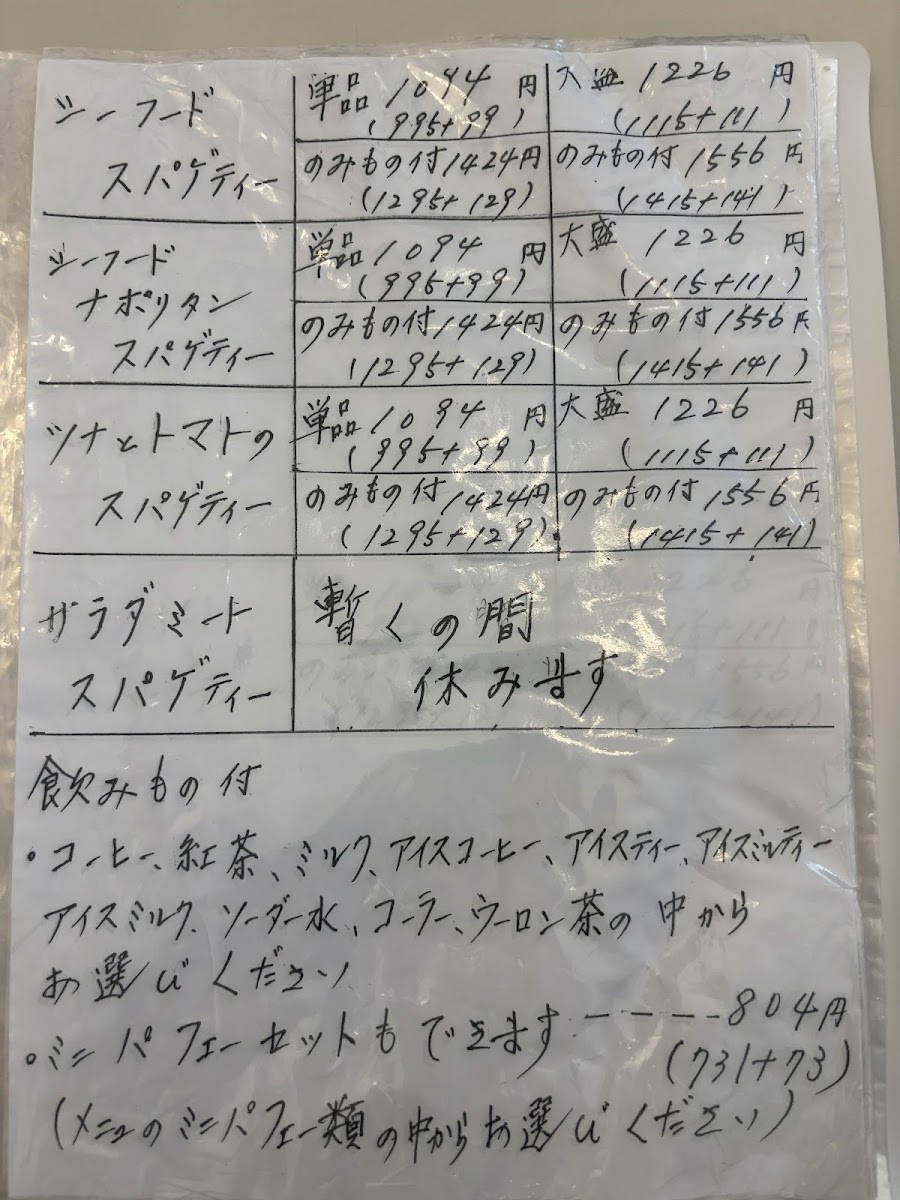 シーフード
スパゲティー
単品 1094 円
(995+99)
大盛 1226 円
(1115+111)
のみもの付 1424円
(1295+129)
のみもの付 1556円
(1415+141)
シーフード
ナポリタン
スパゲティー
単品 1094 円
(995+99)
大盛 1226 円
(1115+111)
のみもの付 1424円
(1295+129)
のみもの付 1556円
(1415+141)
ツナとトマトの
スパゲティー
単品 1094 円
(995+99)
大盛 1226 円
(1115+111)
のみもの付 1424円
(1295+129)
のみもの付 1556円
(1415+141)
サラダミート
スパゲティー
暫くの間
休みます
飲みもの付
・コーヒー、紅茶、ミルク、アイスコーヒー、アイスティー、アイスミルティー
アイスミルク、ソーダー水、コーラー、ウーロン茶の中から
お選びください
・ミニパフェーセットもできます ----804円
(731+73)
(メニューのミニパフェー類の中からお選びください)